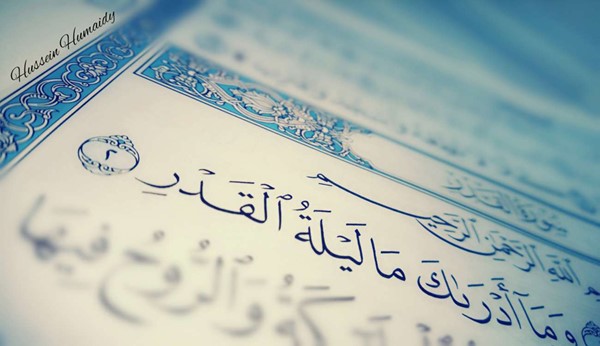 Hussein Humaidy
سورة القدر
ٱللَّهِ ٱلرَّحْمَٰنِ ٱلرَّحِيمِ
وَمَآ أَدْرَىٰكَ مَا لَيْلَةُ ٱلْقَدْرِ ٢
وَٱلرُّوحُ فِيهَا